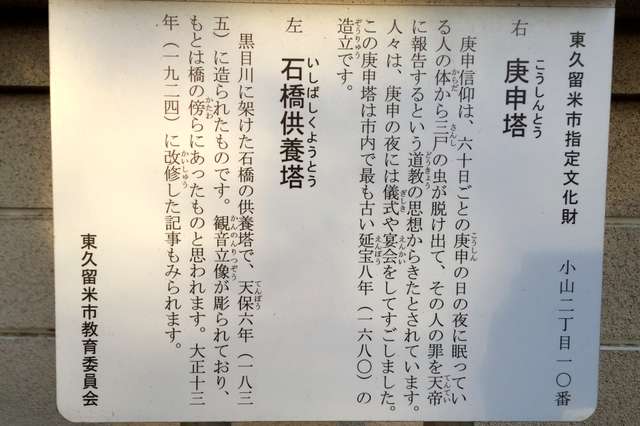 東久留米市指定文化財　小山二丁目一〇番
右　庚申塔
こうしんとう
庚申信仰は、六十日ごとの庚申の日の夜に眠ってい
る人の体から三尸の虫が脱け出て、その人の罪を天帝
に報告するという道教の思想からきたとされています。
人々は、庚申の夜には儀式や宴会をしてすごしました。
この庚申塔は市内で最も古い延宝八年（一六八〇）の
造立です。
左　石橋供養塔
いしばしくようとう
黒目川に架けた石橋の供養塔で、天保六年（一八三
五）に造られたものです。観音立像が彫られており、
もとは橋の傍らにあったものと思われます。大正十三
年（一九二四）に改修した記事もみられます。
東久留米市教育委員会